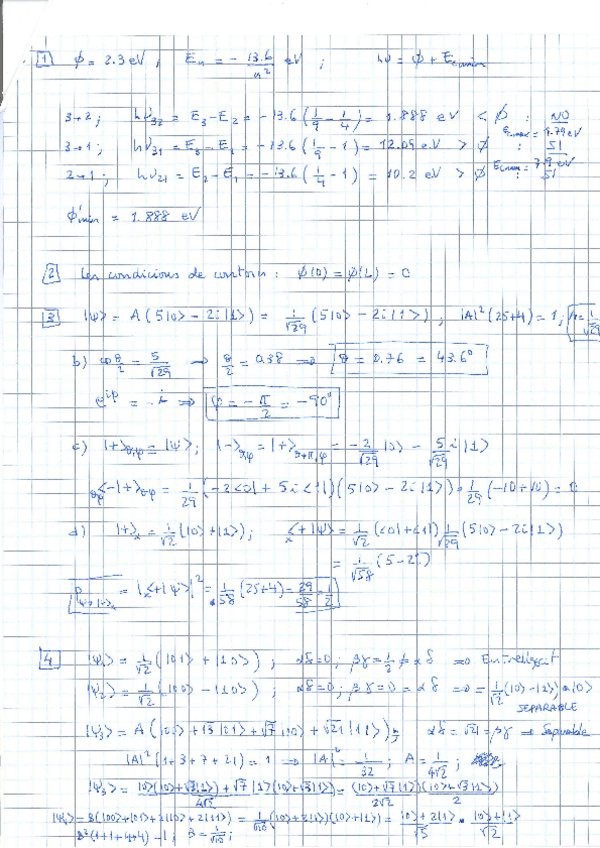 1 ϕ = 2.3 eV ; En = - 13.6/n² eV ; hν = ϕ + Ecmin
3→2 ; hν32 = E3 - E2 = -13.6 (1/9 - 1/4) = 1.888 eV < ϕ : NO
3→1 ; hν31 = E3 - E1 = -13.6 (1/9 - 1) = 12.09 eV > ϕ : SI
2→1 ; hν21 = E2 - E1 = -13.6 (1/4 - 1) = 10.2 eV > ϕ : SI
ϕmin = 1.888 eV
2 Les condicions de contorn : ϕ(0) = ϕ(L) = 0
3 |ψ> = A (5|0> - 2i|1>) = 1/√29 (5|0> - 2i|1>) ; |A|² (25+4) = 1 ; A = 1/√29
b) cos θ/2 = 5/√29 → θ/2 = 0.38 ⇒ θ = 0.76 = 43.6°
e^iφ = -i ⇒ φ = -π/2 = -90°
c) |+>θ,φ = |ψ> ; |->θ,φ = |+>θ+π,φ = -2/√29 |0> - 5/√29 i |1>
θφ<-|+>θφ = 1/29 (-2<0| + 5i<1|)(5|0> - 2i|1>) = 1/29 (-10+10) = 0
d) |+>x = 1/√2 (|0> + |1>) ; x<+|ψ> = 1/√2 (<0| + <1|) 1/√29 (5|0> - 2i|1>)
= 1/√58 (5 - 2i)
Pψ→|+>x = |x<+|ψ>|² = 1/58 (25+4) = 29/58 = 1/2
4 |ψ1> = 1/√2 (|01> + |10>) ; αδ = 0 ; βγ = 1/2 ≠ αδ ⇒ Entrellaçat
|ψ2> = 1/√2 (|00> - |10>) ; αδ = 0 ; βγ = 0 = αδ ⇒ = 1/√2 (|0> - |1>) |0>
SEPARABLE
|ψ3> = A (|00> + √3 |01> + √7 |10> + √21 |11>) ; αδ = √21 = βγ ⇒ Separable
|A|² (1+3+7+21) = 1 → |A|² = 1/32 ; A = 1/4√2 ;
|ψ3> = |0>(|0>+√3|1>) + √7 |1>(|0>+√3|1>)/4√2 = (|0>+√7|1>)/2√2 (|0>+√3|1>)/2
|ψ4> = B (|00> + |01> + 2|10> + 2|11>) = 1/√10 (|0>+2|1>)(|0>+|1>) = |0>+2|1>/√5 · |0>+|1>/√2
B² (1+1+4+4) = 1 ; B = 1/√10 ;